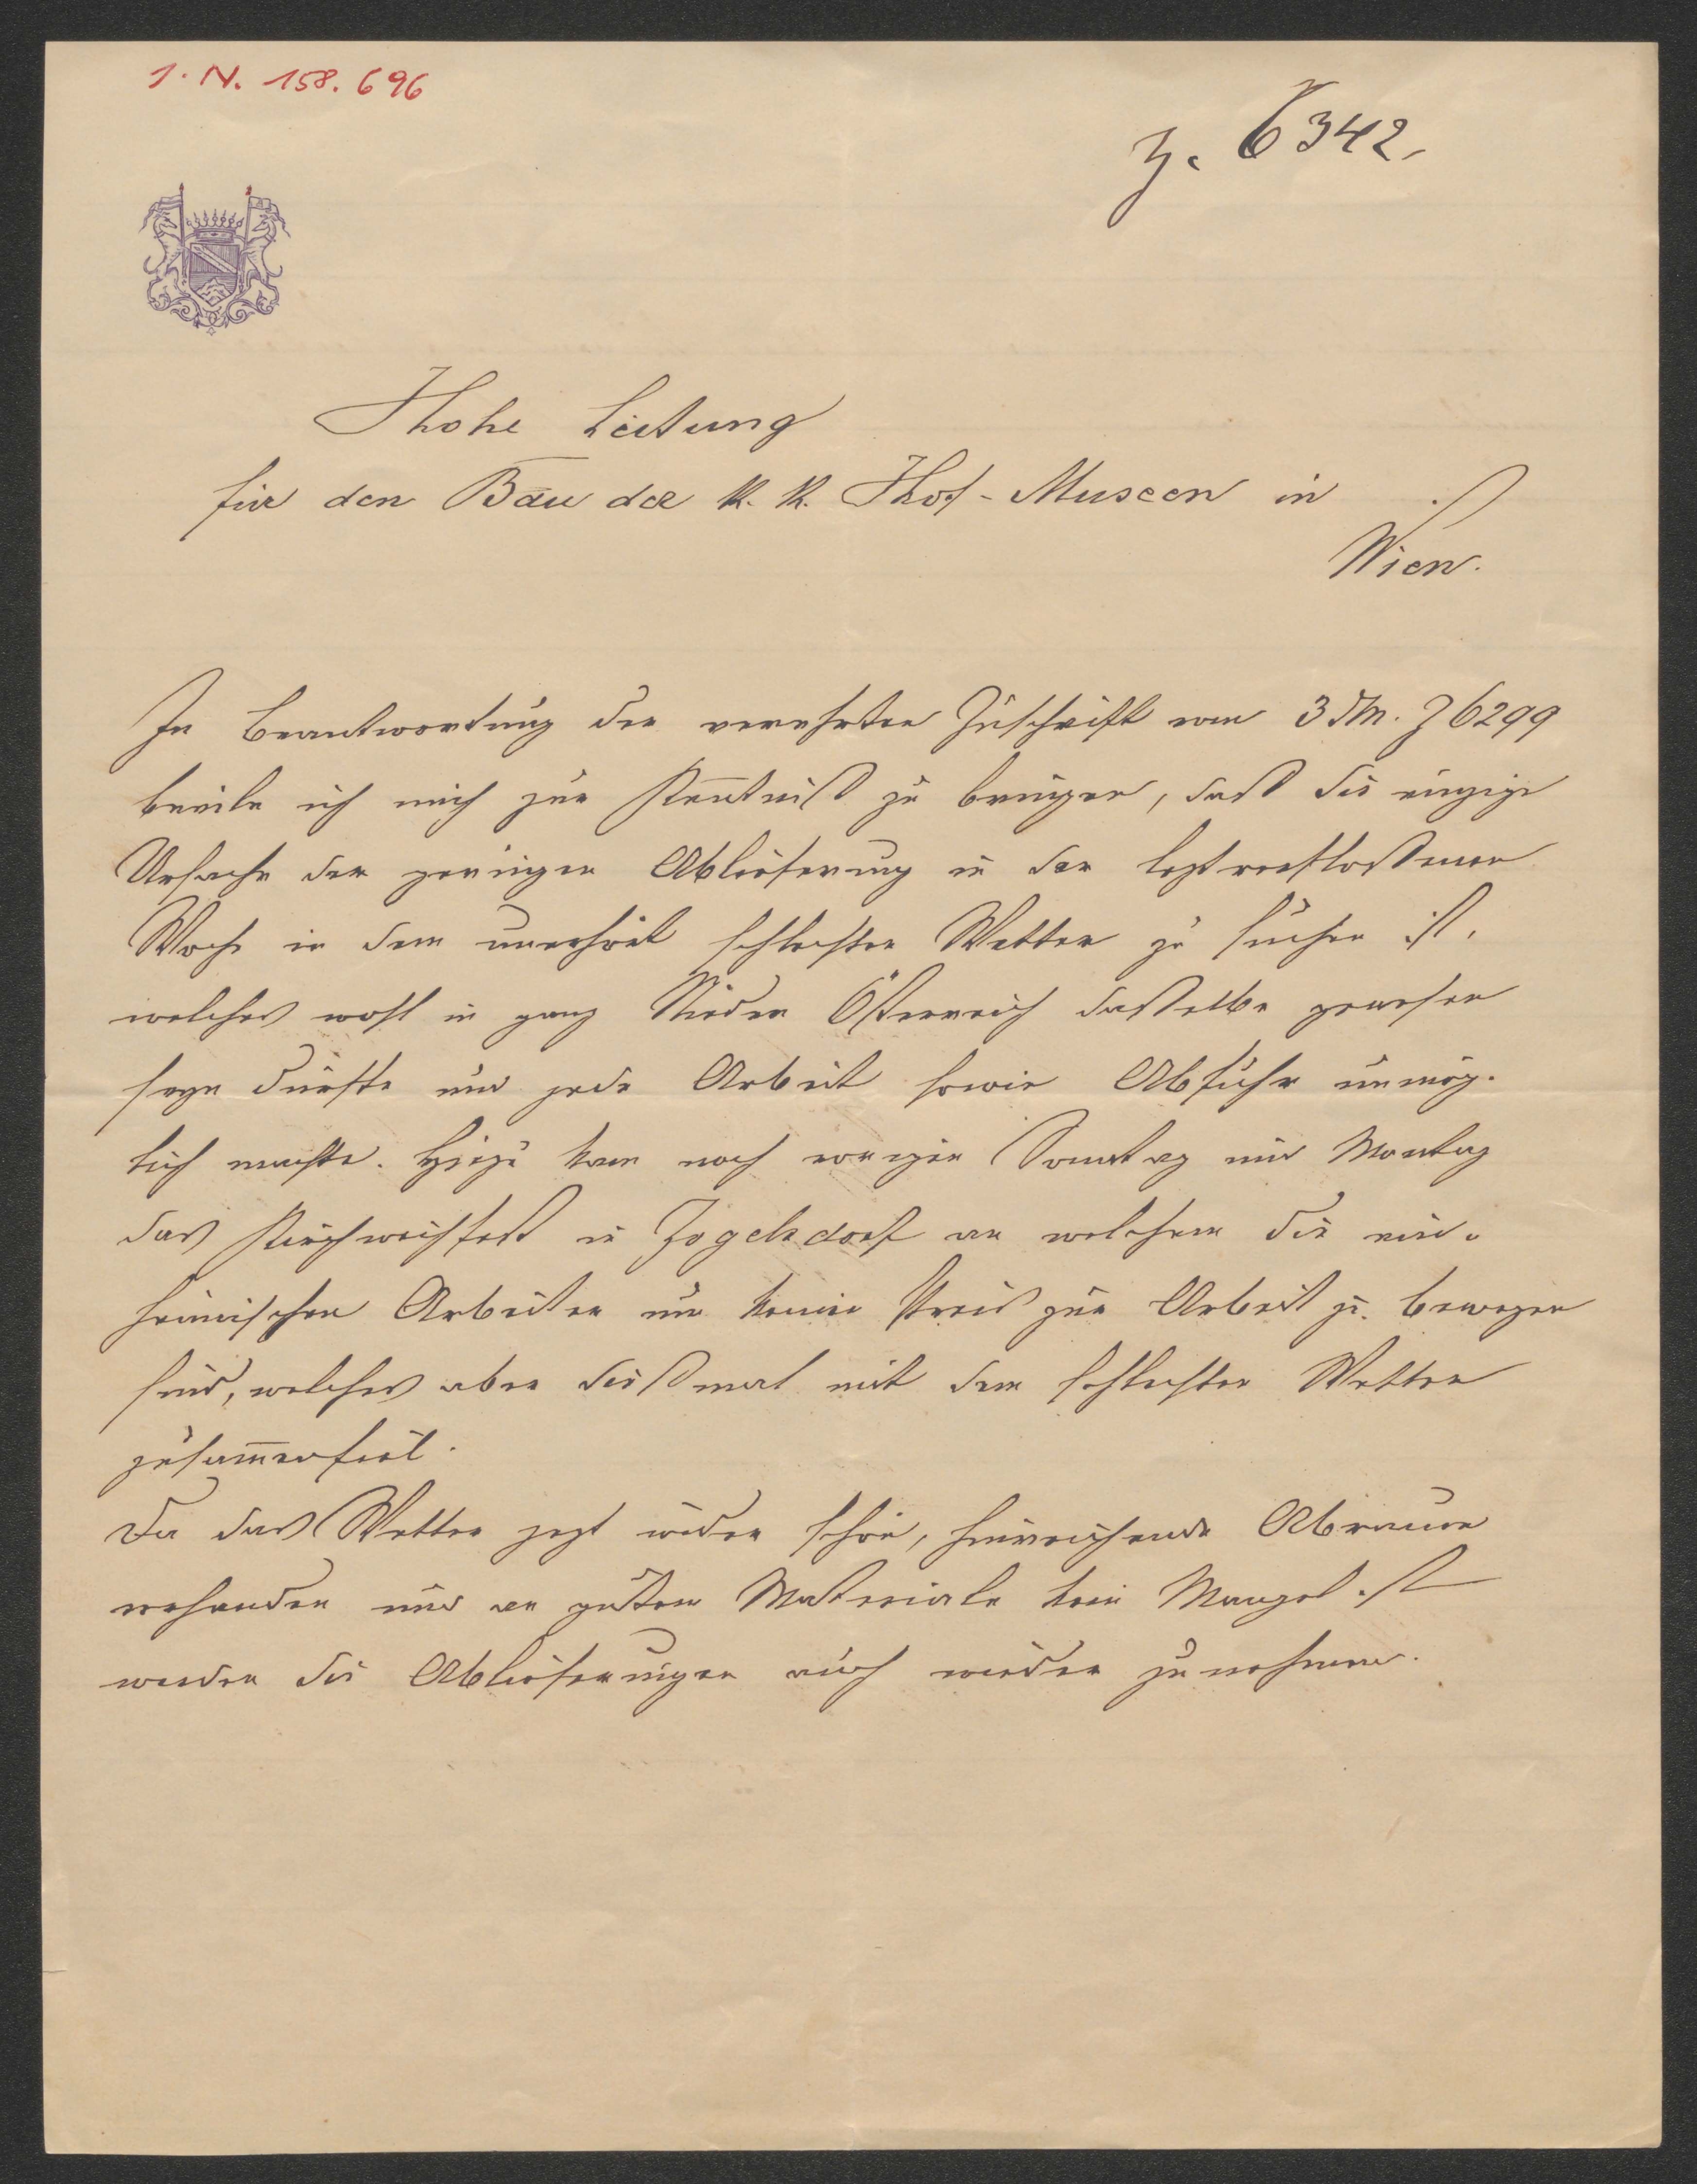 I. N. 158.696
Z. 6342.
Hohe Leitung
für den Bau der k. k. Hof-Museen in
Wien.
In Beantwortung der verehrten Zuschrift vom 3 d M. Z 6299
beeile ich mich zur Keñtniß zu bringen, daß die einzige
Ursache der geringen Ablieferung in der leztverfloßenen
Woche in dem unerhört schlechten Wetter zu suchen ist,
welches wohl in ganz Nieder Österreich dasselbe gewesen
seyn dürfte und jede Arbeit sowie Abfuhr unmög-
lich machte. Hiezu kam noch vorigen Sonntag und Montag
das Kirchweihfest in Zogelsdorf an welchem die ein-
heimischen Arbeiter um keinen Preis zur Arbeit zu bewegen
sind, welches aber dießmal mit dem schlechten Wetter
zusam̄enfiel.
Da das Wetter jezt wieder schön, hinreichende Abräume
vorhanden und an gutem Materiale kein Mangel ist
werden die Ablieferungen auch wieder zunehmen.